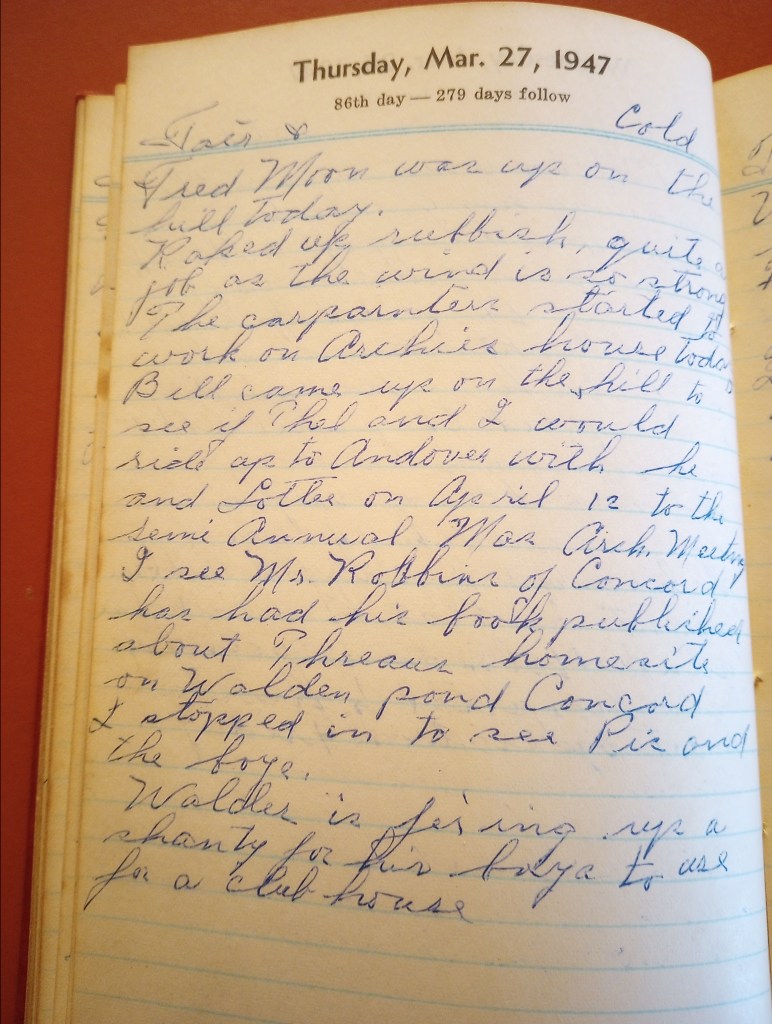 Thursday, Mar. 27, 1947
86th day — 279 days follow
Fair & Cold
Fred Moon was up on the
hill today.
Raked up rubbish, quite a
job as the wind is so strong
The carparnters started to
work on Archies house today
Bill came up on the hill to
see if Thel and I would
ride up to Andover with he
and Lottee on April 12 to the
Semi Annual Mas Arch. Meeting
I see Mr. Robbins of Concord
has had his book published
about Threaus homesite
on Walden pond Concord
I stopped in to see Pis and
the boys.
Walder is fixing up a
shanty for his boys to use
for a club house